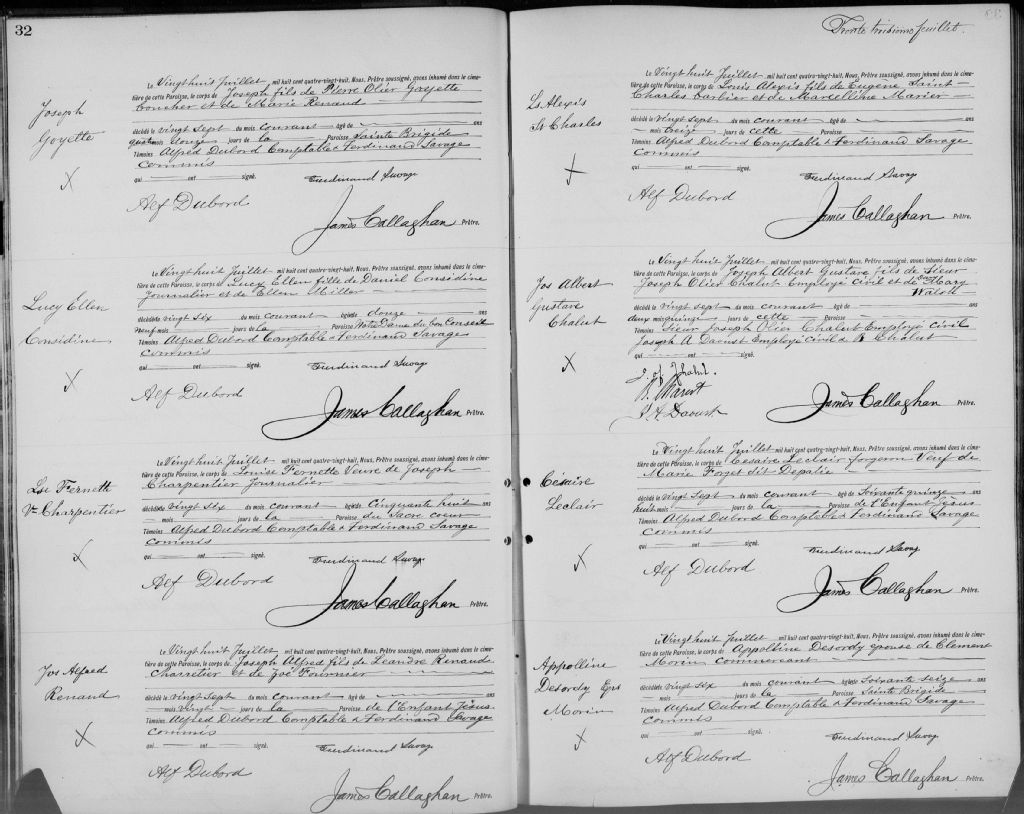 32
Joseph
Goyette
Le Vingt huit Juillet mil huit cent quatre-vingt-huit, Nous, Prêtre soussigné, avons inhumé dans le cime-
tière de cette Paroisse, le corps de Joseph fils de Pierre Olier Goyette
boucher et de Marie Renaud
décédé le vingt sept du mois courant âgé de ans
quatre mois douze jours de la Paroisse Sainte Brigide
Témoins Alfred Dubord Comptable & Ferdinand Savage
Commis
qui ont signé. Ferdinand Savage
Alf Dubord
James Callaghan Prêtre.
Lucy Ellen
Considine
Le Vingt huit Juillet mil huit cent quatre-vingt-huit, Nous, Prêtre soussigné, avons inhumé dans le cime-
tière de cette Paroisse, le corps de Lucy Ellen fille de Daniel Considine
Journalier et de Ellen Miller
décédée le vingt six du mois courant âgée de douze ans
neuf mois jours de la Paroisse Notre Dame du bon Conseil
Témoins Alfred Dubord Comptable & Ferdinand Savage
Commis
qui ont signé. Ferdinand Savage
Alf Dubord
James Callaghan Prêtre.
Lse Fernette
Ve Charpentier
Le Vingt huit Juillet mil huit cent quatre-vingt-huit, Nous, Prêtre soussigné, avons inhumé dans le cime-
tière de cette Paroisse, le corps de Louise Fernette Veuve de Joseph
Charpentier Journalier
décédée le vingt six du mois courant âgée de Cinquante huit ans
mois jours de la Paroisse du Sacré coeur
Témoins Alfred Dubord Comptable & Ferdinand Savage
Commis
qui ont signé. Ferdinand Savage
Alf Dubord
James Callaghan Prêtre.
Jos Alfred
Renaud
Le Vingt huit Juillet mil huit cent quatre-vingt-huit, Nous, Prêtre soussigné, avons inhumé dans le cime-
tière de cette Paroisse, le corps de Joseph Alfred fils de Léandre Renaud
Charretier et de Zoé Fournier
décédé le vingt sept du mois courant âgé de ans
mois vingt jours de la Paroisse de l'Enfant Jésus
Témoins Alfred Dubord Comptable & Ferdinand Savage
Commis
qui ont signé. Ferdinand Savage
Alf Dubord
James Callaghan Prêtre.
Trente troisième feuillet.
Ls Alexis
St Charles
Le Vingt huit Juillet mil huit cent quatre-vingt-huit, Nous, Prêtre soussigné, avons inhumé dans le cime-
tière de cette Paroisse, le corps de Louis Alexis fils de Eugène Saint
Charles barbier et de Marcelline Marier
décédé le vingt sept du mois courant âgé de ans
mois treize jours de cette Paroisse
Témoins Alfred Dubord Comptable & Ferdinand Savage
Commis
qui ont signé. Ferdinand Savage
Alf Dubord
James Callaghan Prêtre.
Jos Albert
Gustave
Chalut
Le Vingt huit Juillet mil huit cent quatre-vingt-huit, Nous, Prêtre soussigné, avons inhumé dans le cime-
tière de cette Paroisse, le corps de Joseph Albert Gustave fils de Sieur
Joseph Olier Chalut Employé Civil et de Dame Mary
Walsh
décédé le vingt sept du mois courant âgé de ans
deux mois quinze jours de cette Paroisse
Témoins Sieur Joseph Olier Chalut Employé Civil
Joseph A Daoust Employé Civil & R Chalut
qui ont signé.
J. A. Daoust
James Callaghan Prêtre.
Césaire
Leclair
Le Vingt huit Juillet mil huit cent quatre-vingt-huit, Nous, Prêtre soussigné, avons inhumé dans le cime-
tière de cette Paroisse, le corps de Césaire Leclair forgeron Veuf de
Marie Forget dit Depatie
décédé le vingt sept du mois courant âgé de Soixante quinze ans
huit mois jours de la Paroisse de l'Enfant Jésus
Témoins Alfred Dubord Comptable & Ferdinand Savage
Commis
qui ont signé. Ferdinand Savage
Alf Dubord
James Callaghan Prêtre.
Appolline
Desordy Eps
Morin
Le Vingt huit Juillet mil huit cent quatre-vingt-huit, Nous, Prêtre soussigné, avons inhumé dans le cime-
tière de cette Paroisse, le corps de Appolline Desordy épouse de Clement
Morin Commercant
décédée le vingt six du mois courant âgée de Soixante seize ans
mois jours de la Paroisse Sainte Brigide
Témoins Alfred Dubord Comptable & Ferdinand Savage
Commis
qui ont signé. Ferdinand Savage
Alf Dubord
James Callaghan Prêtre.